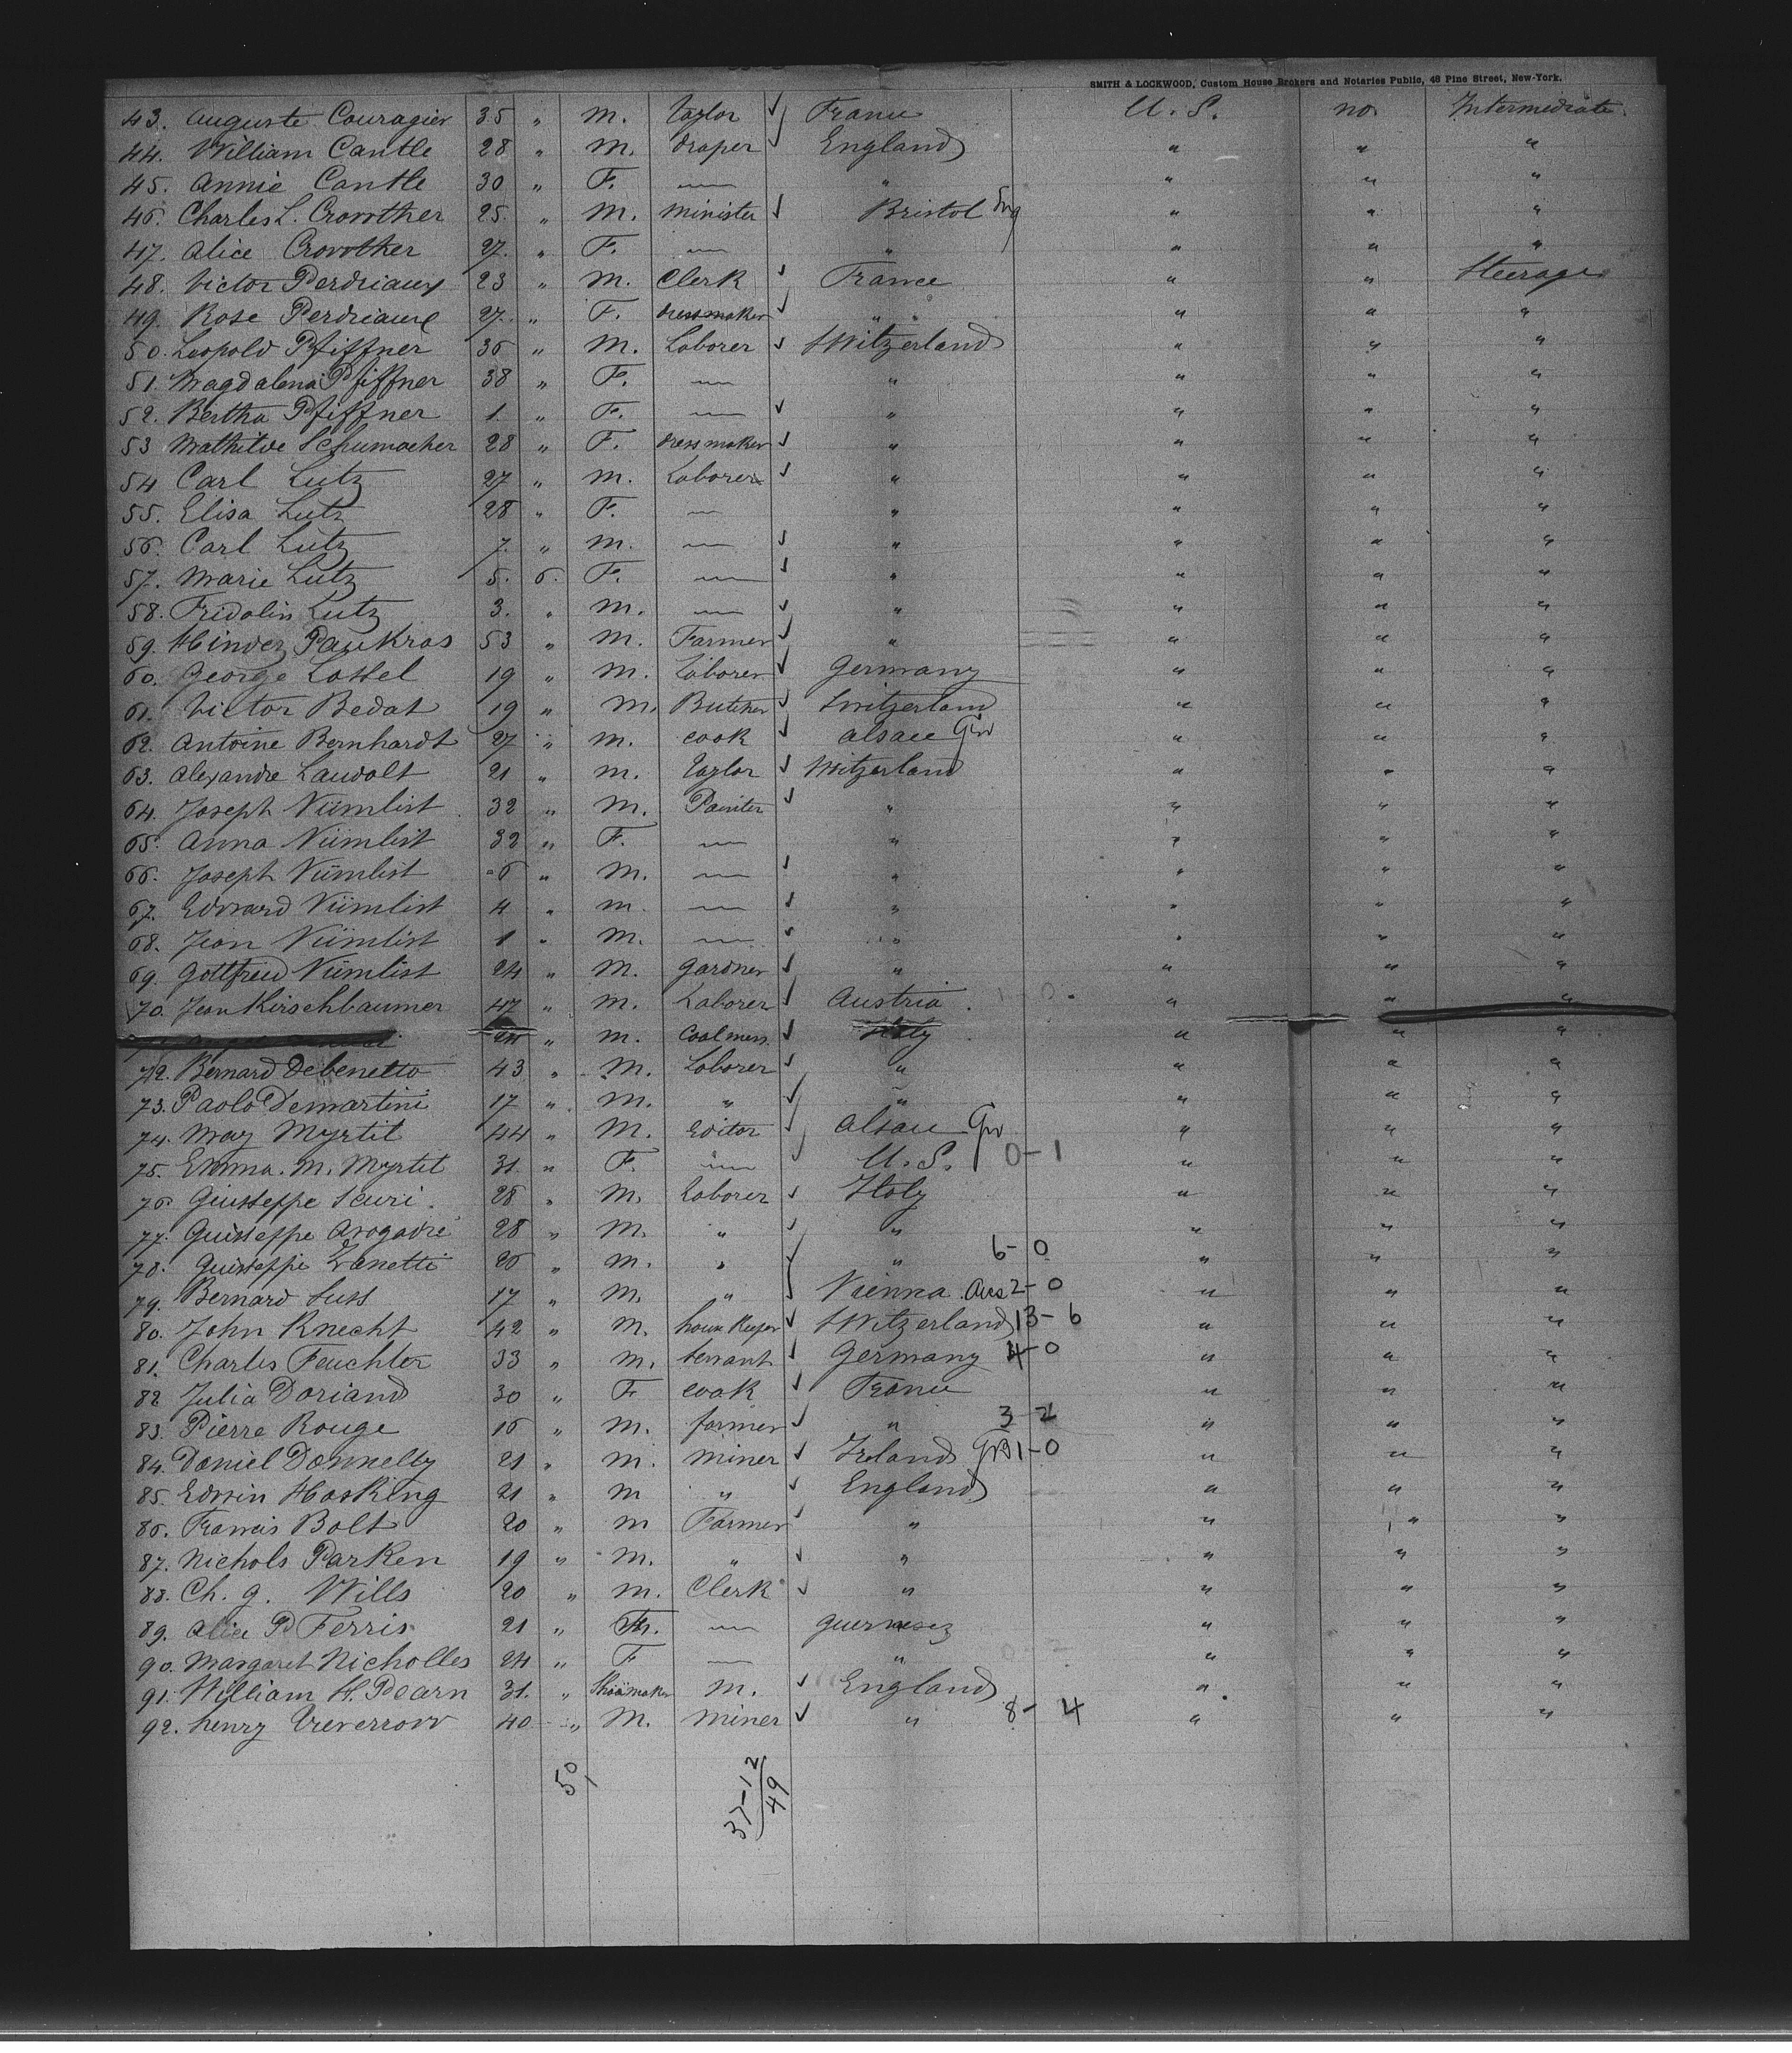 SMITH & LOCKWOOD, Custom House Brokers and Notaries Public, 48 Pine Street, New-York.
43. Auguste Couragier 35 " M. Taylor ✓ France U. S. no Intermediate
44. William Cantle 28 " M. Draper ✓ England " " "
45. Annie Cantle 30 " F. — " " " "
46. Charles L. Crowther 25. " M. Minister ✓ Bristol Eng " " "
47. Alice Crowther 27. " F. — " " " "
48. Victor Perdriaux 23 " M. Clerk ✓ France " " Steerage
49. Rose Perdriaux 27. " F. Dressmaker ✓ " " " " "
50. Leopold Pfiffner 36 " M. Laborer ✓ Switzerland " " "
51. Magdalena Pfiffner 38 " F. — " " " "
52. Bertha Pfiffner 1. " F. — ✓ " " " "
53 Mathilde Schumacher 28 " F. Dressmaker ✓ " " " "
54 Carl Lutz 27 " M. Laborer ✓ " " " "
55. Elisa Lutz 28 " F. — " " " "
56. Carl Lutz 7. " M. — ✓ " " " "
57. Marie Lutz 5. 6. F. — ✓ " " " "
58. Fridolin Lutz 3. " M. — ✓ " " " "
59. Hinder Pankras 53 " M. Farmer ✓ " " " "
60. George Lossel 19 " M. Laborer ✓ Germany " " "
61. Victor Bedat 19 " M. Butcher ✓ Switzerland " " "
62. Antoine Bernhardt 27 " M. Cook ✓ Alsace Ger " " "
63. Alexandre Laudolt 21 " M. Taylor ✓ Switzerland " " "
64. Joseph Nümlist 32 " M. Painter ✓ " " " "
65. Anna Nümlist 32 " F. — " " " "
66. Joseph Nümlist 6 " M. — ✓ " " " "
67. Edward Nümlist 4 " M. — ✓ " " " "
68. Jean Nümlist 1 " M. — ✓ " " " "
69. Gottfried Nümlist 24 " M. Gardner ✓ " " " "
70. Jean Kirschbaumer 47 " M. Laborer ✓ Austria 1-0 " " "
24 " M. ✓ Italy " " "
72. Bernard Debenetto 43 " M. Laborer ✓ " " " "
73. Paolo Demartini 17 " M. " ✓ " " " "
74. May Myrtil 44 " M. Editor ✓ Alsace Ger " " "
75. Emma. M. Myrtil 31. " F. — ✓ U. S. 0-1 " " "
76. Giusseppe Scuri. 28 " M. Laborer ✓ Italy " " "
77. Guisseppe Arogadre 28 " M. " ✓ " " " "
78. Guisseppi Zanetti 26 " M. " ✓ " 6-0 " " "
79. Bernard Suss 17 " M. " ✓ Vienna Aus 2-0 " " "
80. John Knecht 42 " M. house Keeper ✓ Switzerland 13-6 " " "
81. Charles Feuchter 33 " M. Servant ✓ Germany 4-0 " " "
82 Julia Doriand 30 " F. Cook ✓ France " " "
83. Pierre Rouge 16 " M. farmer ✓ " 3-2 " " "
84. Daniel Donnelly 21 " M. Miner ✓ Ireland GB 1-0 " " "
85. Edwin Hosking 21 " M " ✓ England " " "
86. Francis Bolt 20 " M Farmer ✓ " " " "
87. Nichols Parken 19 " M. " ✓ " " " "
88. Ch. G. Wills 20 " M. Clerk ✓ " " " "
89. Alice P Ferris 21 " F. — Guernesez " " "
90. Margaret Nicholles 24 " F — " 0-2 " " "
91. William H. Pearn 31. " Shoemaker M. ✓ England " " "
92. henry Treverrow 40 " M. Miner ✓ " 8-4 " " "
50
37-12
49